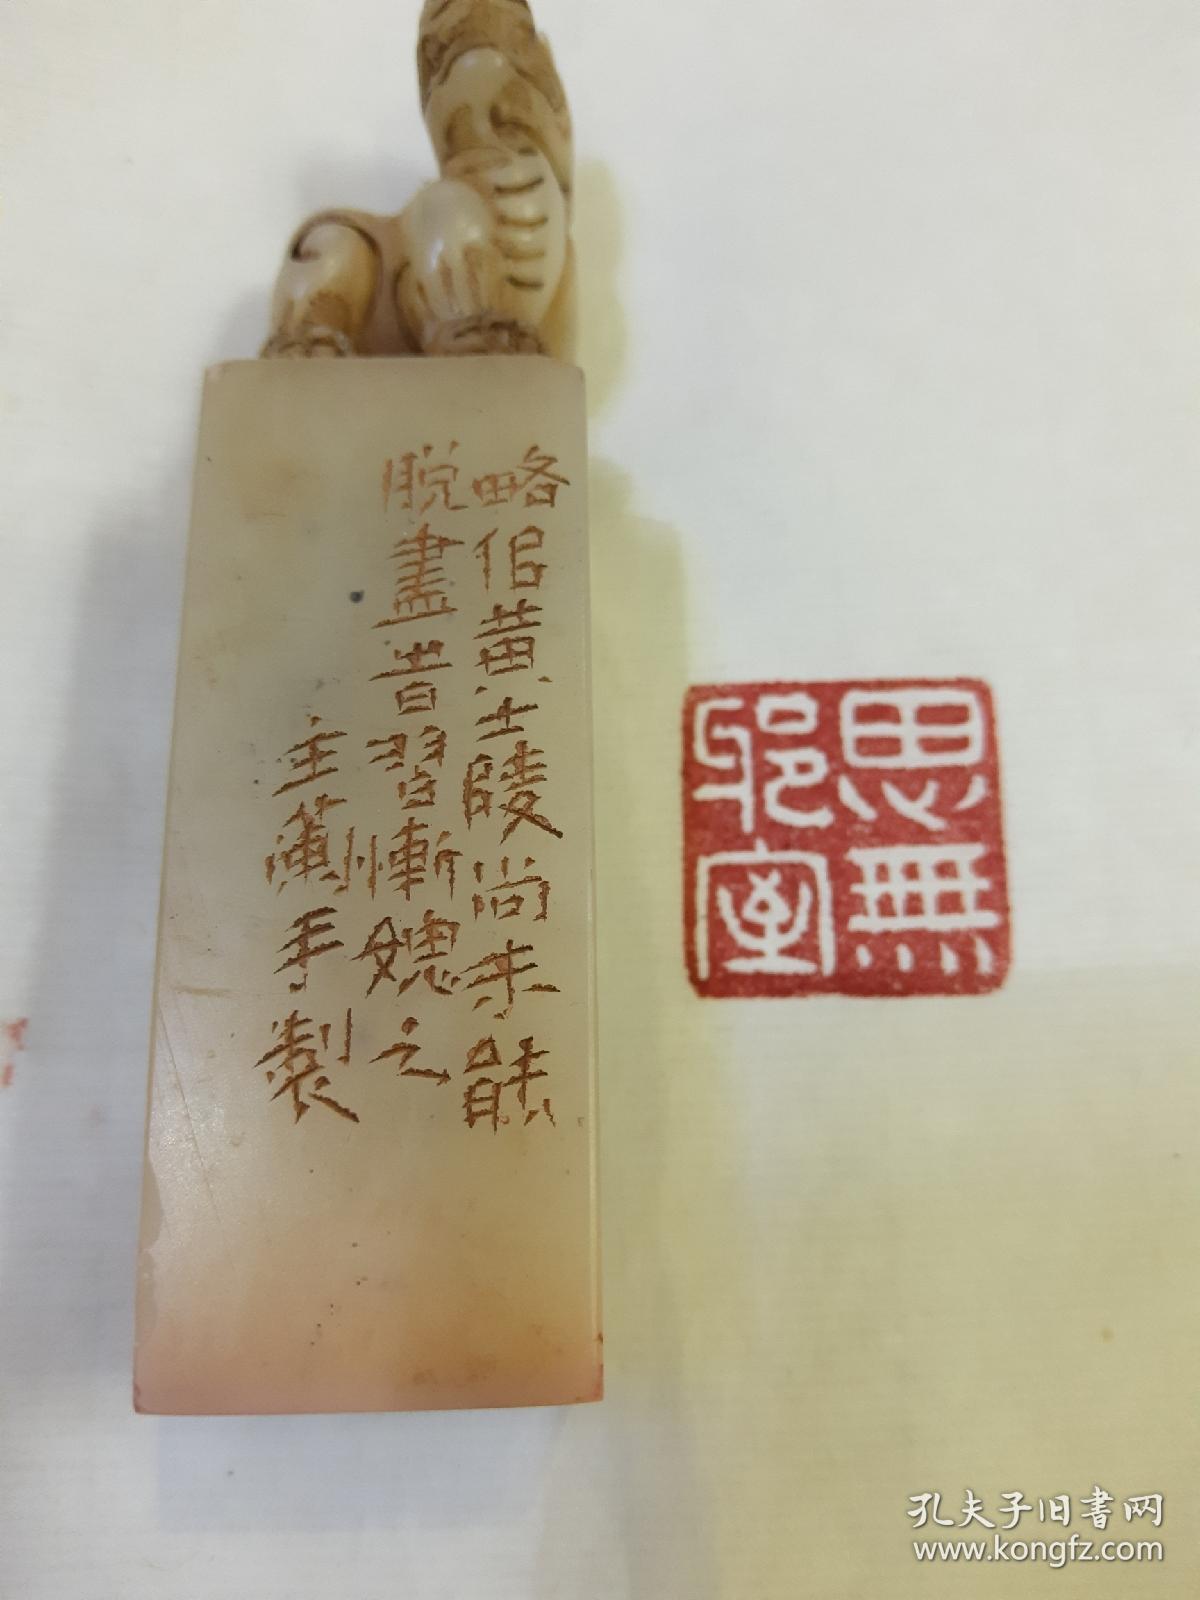 略佀黃士陵尚未能
脫盡昔習慚媿之
主蘭手製
思無
邪室
孔夫子旧书网
www.kongfz.com